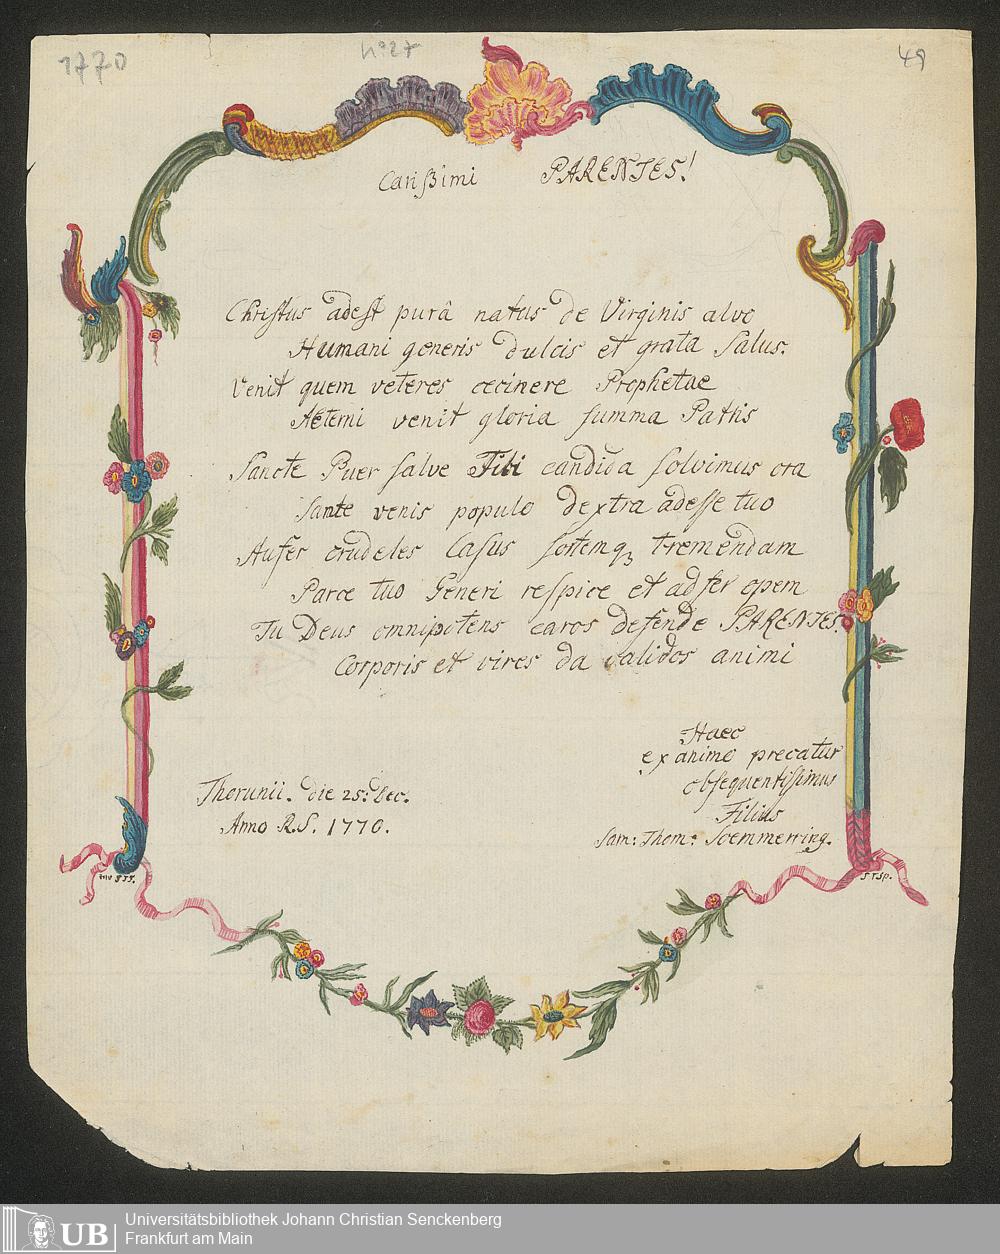 1770
No 27
49
Carißimi PARENTES!
Christus adest purâ natus de Virginis alvo
Humani generis dulcis et grata Salus.
Venit quem veteres cecinere Prophetae
Aeterni venit gloria summa Patris
Sancte Puer salve Tibi candida solvimus ora
Sante venis populo dextra adesse tuo
Aufer crudeles Casus sortemq; tremendam
Parce tuo Generi respice et adfer opem
Tu Deus omnipotens caros defende PARENTES.
Corporis et vires da validos animi
Haec
ex animo precatur
obsequentissimus
Filius
Sam: Thom: Soemmerring.
Thorunii. die 25: Dec.
Anno R.S. 1770.
STSp.
UB
Universitätsbibliothek Johann Christian Senckenberg
Frankfurt am Main